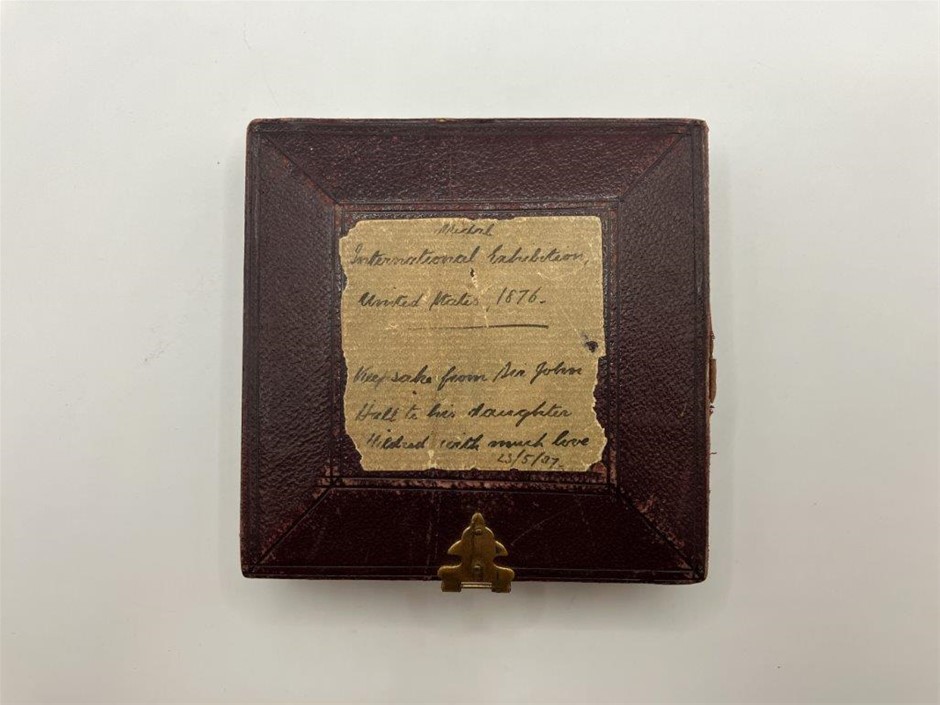 International Exhibition,
United States, 1876.
Keepsake from Sir John
Hall to his daughter
Mildred with much love